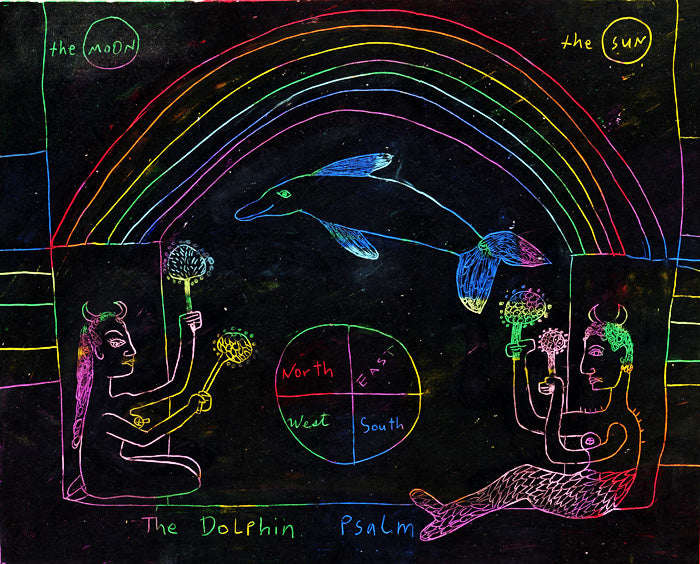 the MOON
the SUN
North
EAST
West
South
The Dolphin Psalm